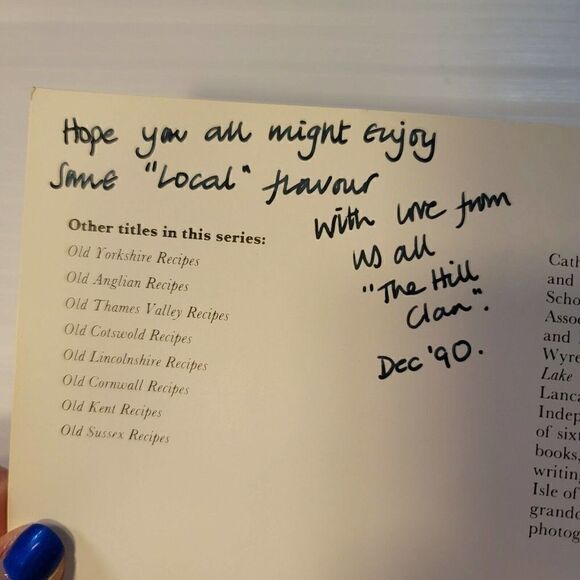 Hope you all might enjoy
some "Local" flavour
with love from
us all
"The Hill
Clan".
Dec '90.
Other titles in this series:
Old Yorkshire Recipes
Old Anglian Recipes
Old Thames Valley Recipes
Old Cotswold Recipes
Old Lincolnshire Recipes
Old Cornwall Recipes
Old Kent Recipes
Old Sussex Recipes
Cath
and
Scho
Assoc
and
Wyre
Lake
Lanca
Indep
of sixt
books,
writin
Isle of
grandc
photog